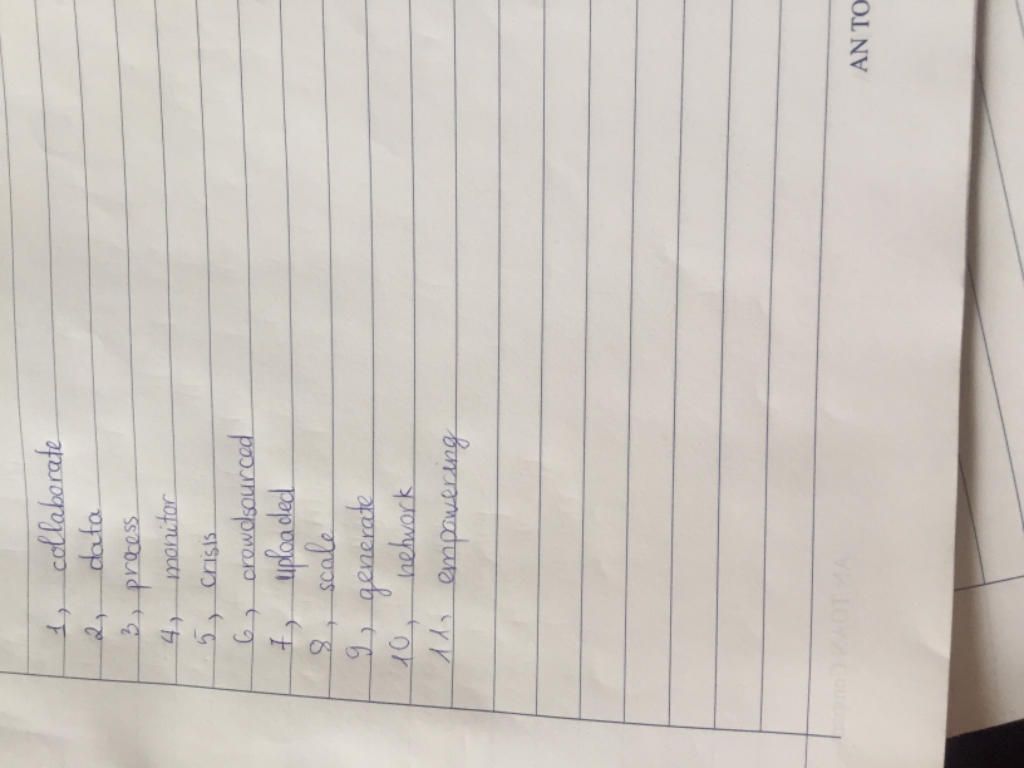 1, collaborate
2, data
3, process
4, monitor
5, crisis
6, crowdsourced
7, uploaded
8, scale
9, generate
10, network
11, empowering
AN TO